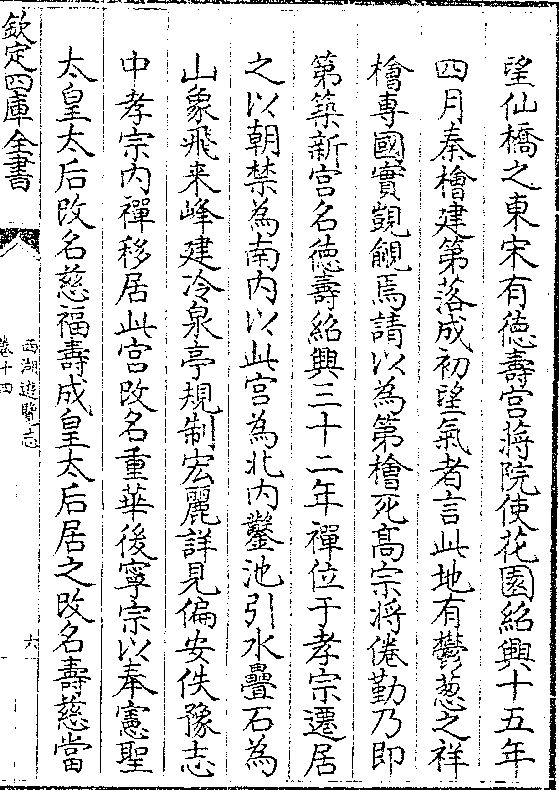 望仙橋之東宋有徳壽宫蔣院使花園紹興十五年
四月秦檜建第落成初望氣者言此地有鬱葱之祥
檜專國實覬覦焉請以為第檜死髙宗將倦勤乃即
第築新宫名徳壽紹興三十二年禪位于孝宗遷居
之以朝禁為南内以此宫為北内鑿池引水疊石為
山象飛来峰建冷泉亭規制宏麗詳見偏安佚豫志
中孝宗内禪移居此宫改名重華後寧宗以奉憲聖
太皇太后改名慈福壽成皇太后居之改名壽慈當
欽定四庫全書
西湖遊覽志
卷十四
六